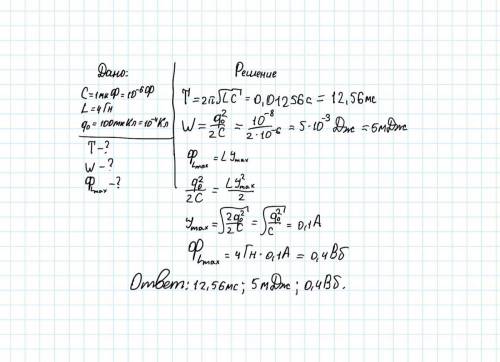 Дано:
C = 1мкФ = 10⁻⁶Ф
L = 4Гн
q₀ = 100мкКл = 10⁻⁴Кл
T - ?
W - ?
Φ_Lmax - ?
Решение
T = 2π√LC = 0,01256с = 12,56мс
W = q₀²/2C = 10⁻⁸/2·10⁻⁶ = 5·10⁻³Дж = 5мДж
Φ_Lmax = LУmax
q₀²/2C = LУ²max/2
Уmax = √2q₀²/2C = √q₀²/C = 0,1А
Φ_Lmax = 4Гн·0,1А = 0,4Вб
Ответ: 12,56мс; 5мДж; 0,4Вб.